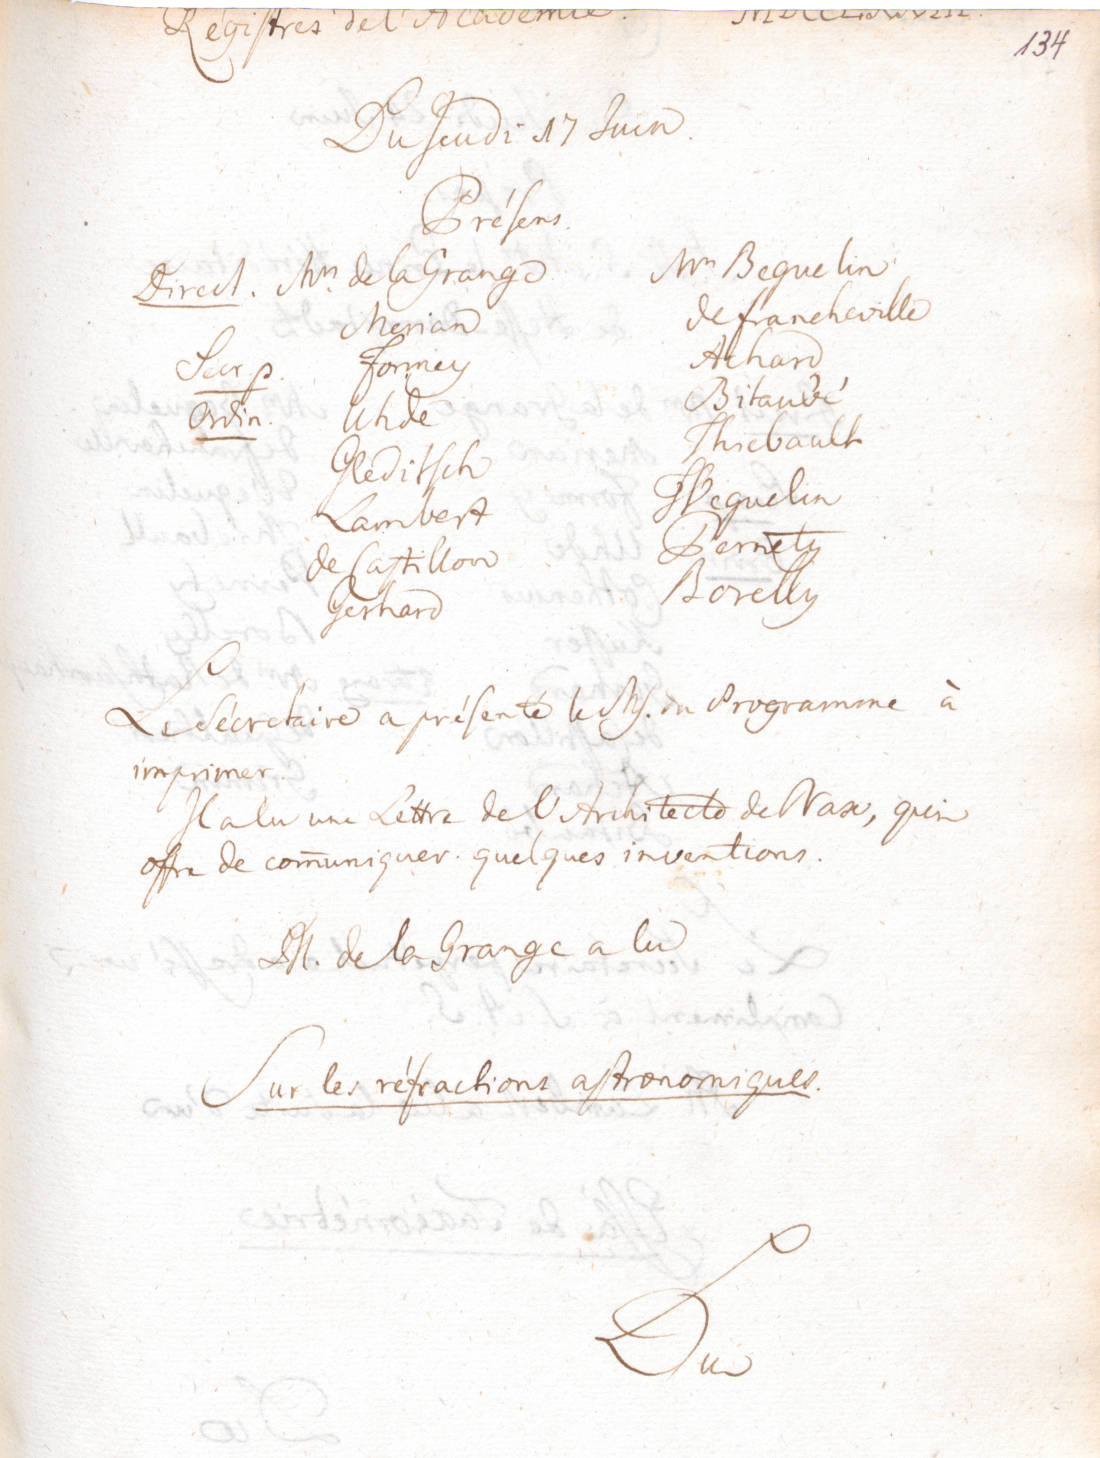 Registres de l'Académie.
134
Du Jeudi 17 Juin.
Présens.
Direct. Mrs. de la Grange
Merian
Secr. p. Formey
Ordin. Uhde
Gleditsch
Lambert
de Castillon
Gerhard
Mrs Beguelin
de francheville
Achard
Bitaubé
Thiebault
Weguelin
Pernety
Borelly
Le Sécretaire a présenté le Ms. du Programme à
imprimer.
Il a lu une Lettre de l'Architecte de Wax, qui
offre de com̄uniquer quelques inventions.
M. de la Grange a lu
Sur les réfractions astronomiques.
Du